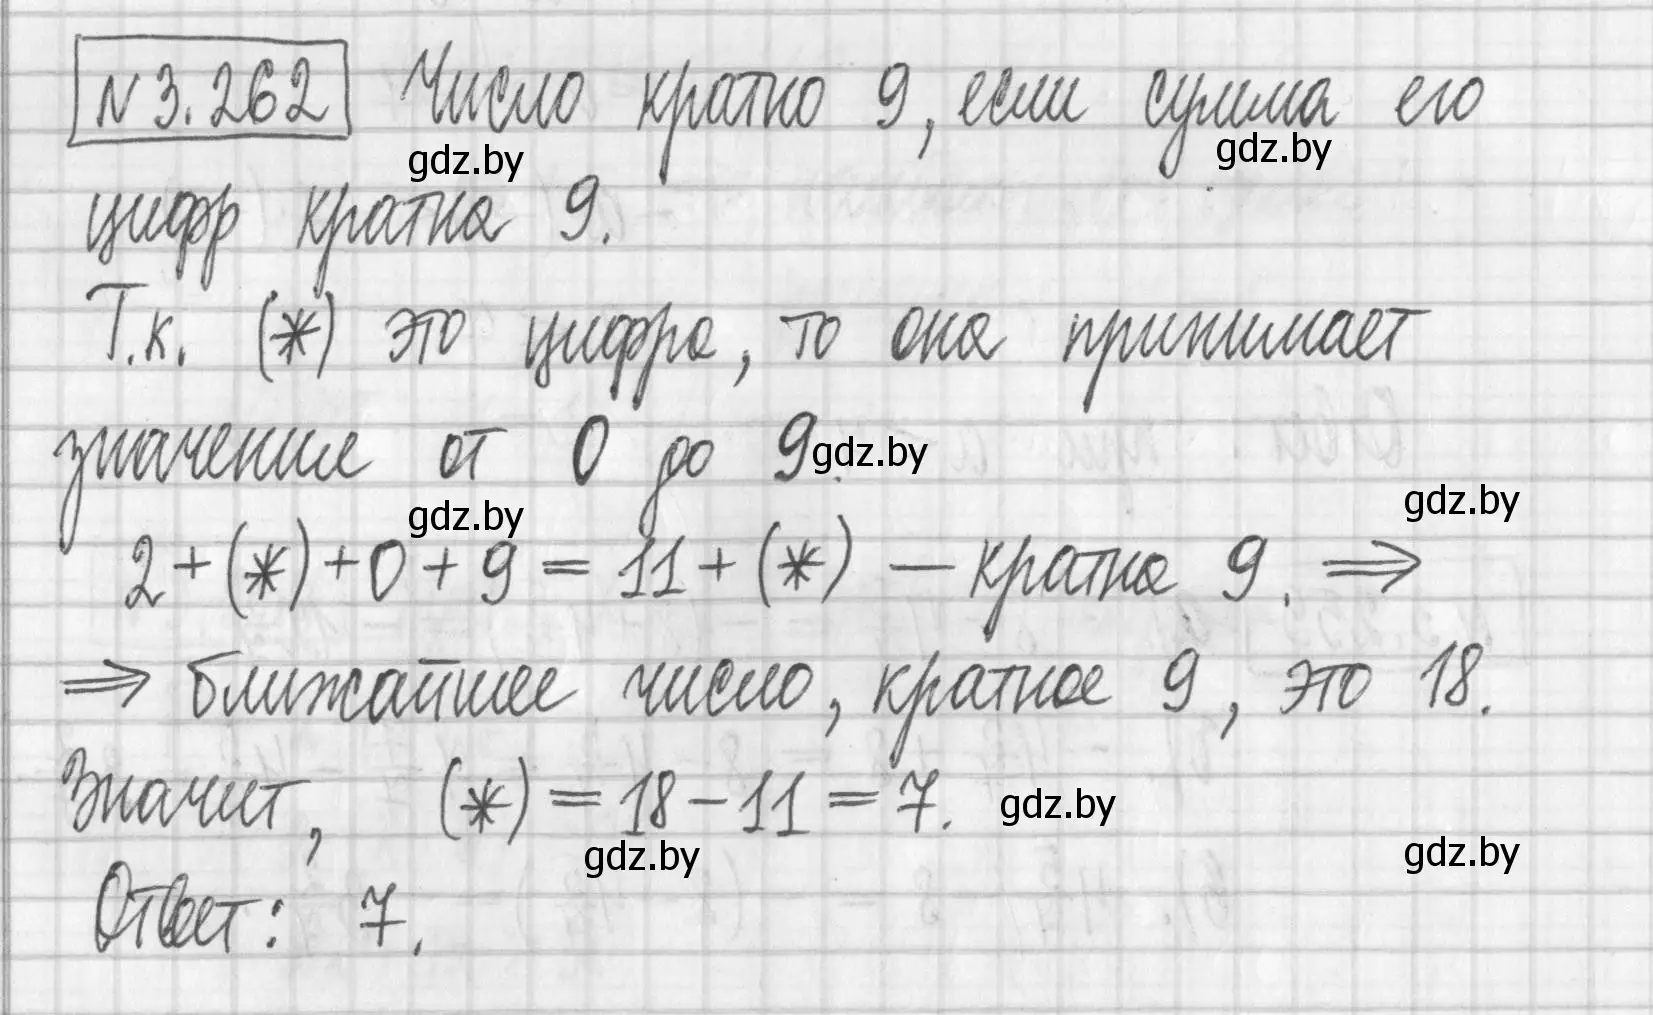 №3.262 Число кратно 9, если сумма его
gdz.by gdz.by
цифр кратна 9.
Т.к. (*) это цифра, то она принимает
значения от 0 до 9. gdz.by
gdz.by gdz.by
2+(*)+0+9=11+(*) — кратна 9. ⇒
⇒ ближайшее число, кратное 9, это 18.
Значит, (*)=18-11=7. gdz.by
gdz.by gdz.by
Ответ: 7.